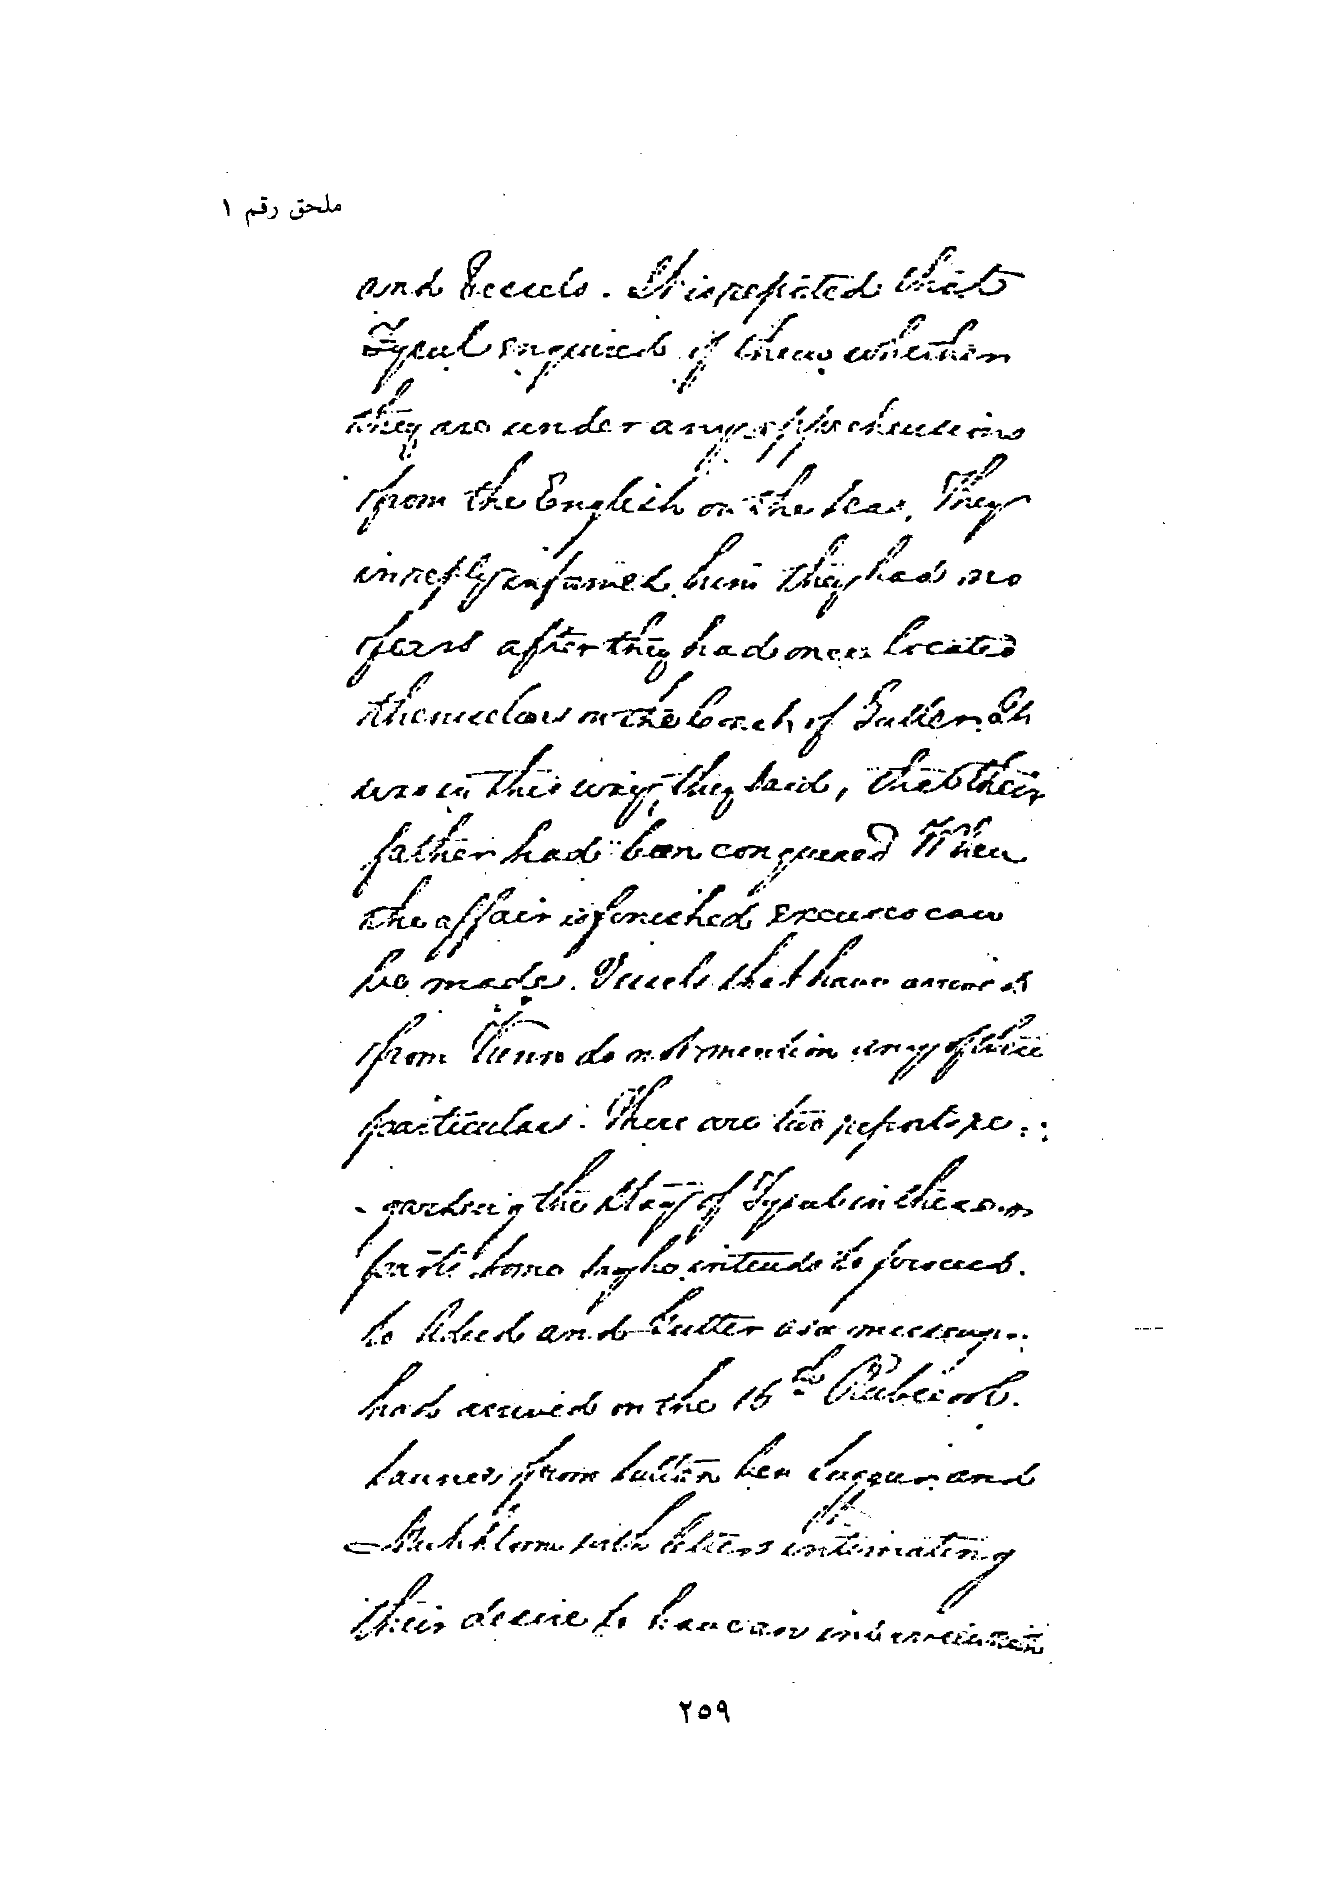 ملحق رقم ١
and Vessels. It is reported that
Fysul enquired of them whether
they are under any apprehensions
from the English on the seas. They
in reply informed him they had no
fears after they had once located
themselves on the beach of Gutter. It
was in this way, they said, that their
father had been conquered When
the affair is finished excuses can
be made. Vessels that have arrived
from there do not mention any of these
particulars. There are two reports re-
-garding the stay of Fysul in these
parts some say he intends to proceed
to and Gutter as a messenger
had arrived on the 16th Rubee ool
from Sultan ben and
with letters intimating
their desire to have an interview with
٢٥٩